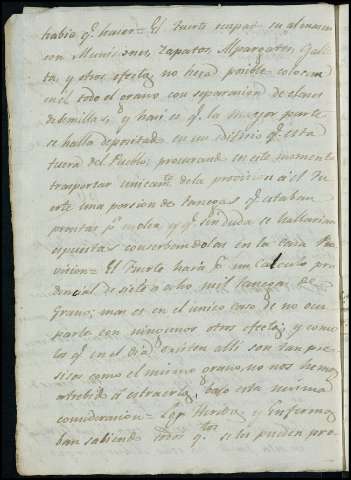 habia q.e hacer = El Fuerte ocupar su almacen
con Municiones, Zapatos, Alpargates, Galle
ta, y otros efectos no hera posible colocar
en el todo el grano con separacion de clases
de semillas, y hasi es q.e la mayor parte
se halla depositada en un edificio q.e esta
fuera del Pueblo, procurando en este momento
trasportar unicam.te de la provicion a el Fu
erte una porcion de fanegas q.e estaban
prontas p.a moler y q.e sin duda se hallarian
espuestas conserbandolas en la Casa Pro
vicion = El Fuerte hará p.r un Calculo pru
dencial de siete a ocho mil fanegas de
Grano; mas es en el unico caso de no ocu
parlo con ningunos otros efectos; y como
los q.e en el dia existen alli son tan pre
sisos como el mismo grano, no nos hemos
atrebido á estraerlos, bajo esta misma
consideracion = Los Heridos y Enfermos
ban saliendo todos los q.e se les pueden pro-